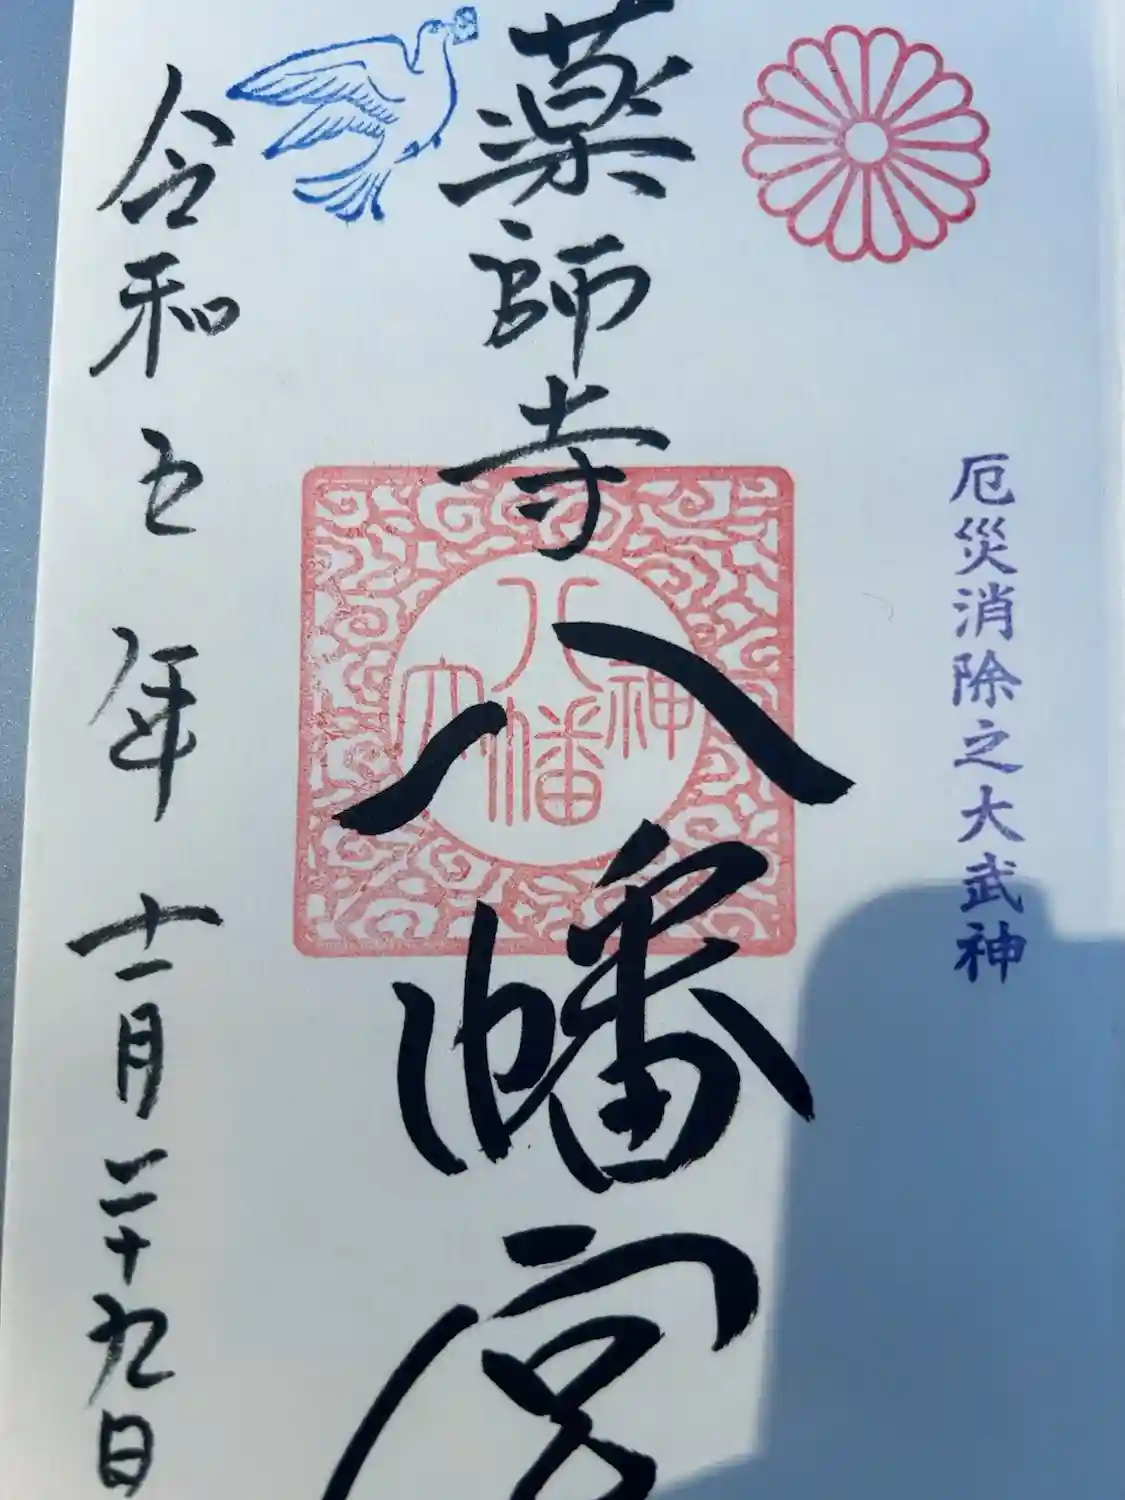 厄災消除之大武神
薬師寺
八幡宮
八幡
大神
令和五年十一月二十九日